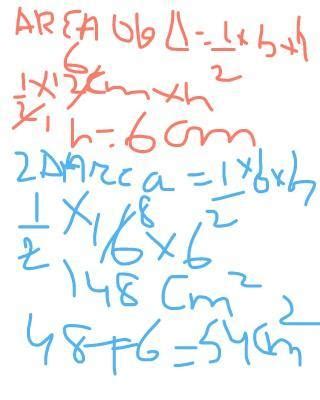 AREA Ob Δ = 1/2 × b × h
1/2 × 12cm × h
6
1
h = 6cm
2Δ Area = 1/2 × b × h
1/2 × 16 × 6
8
148 cm²
48 + 6 = 54cm²